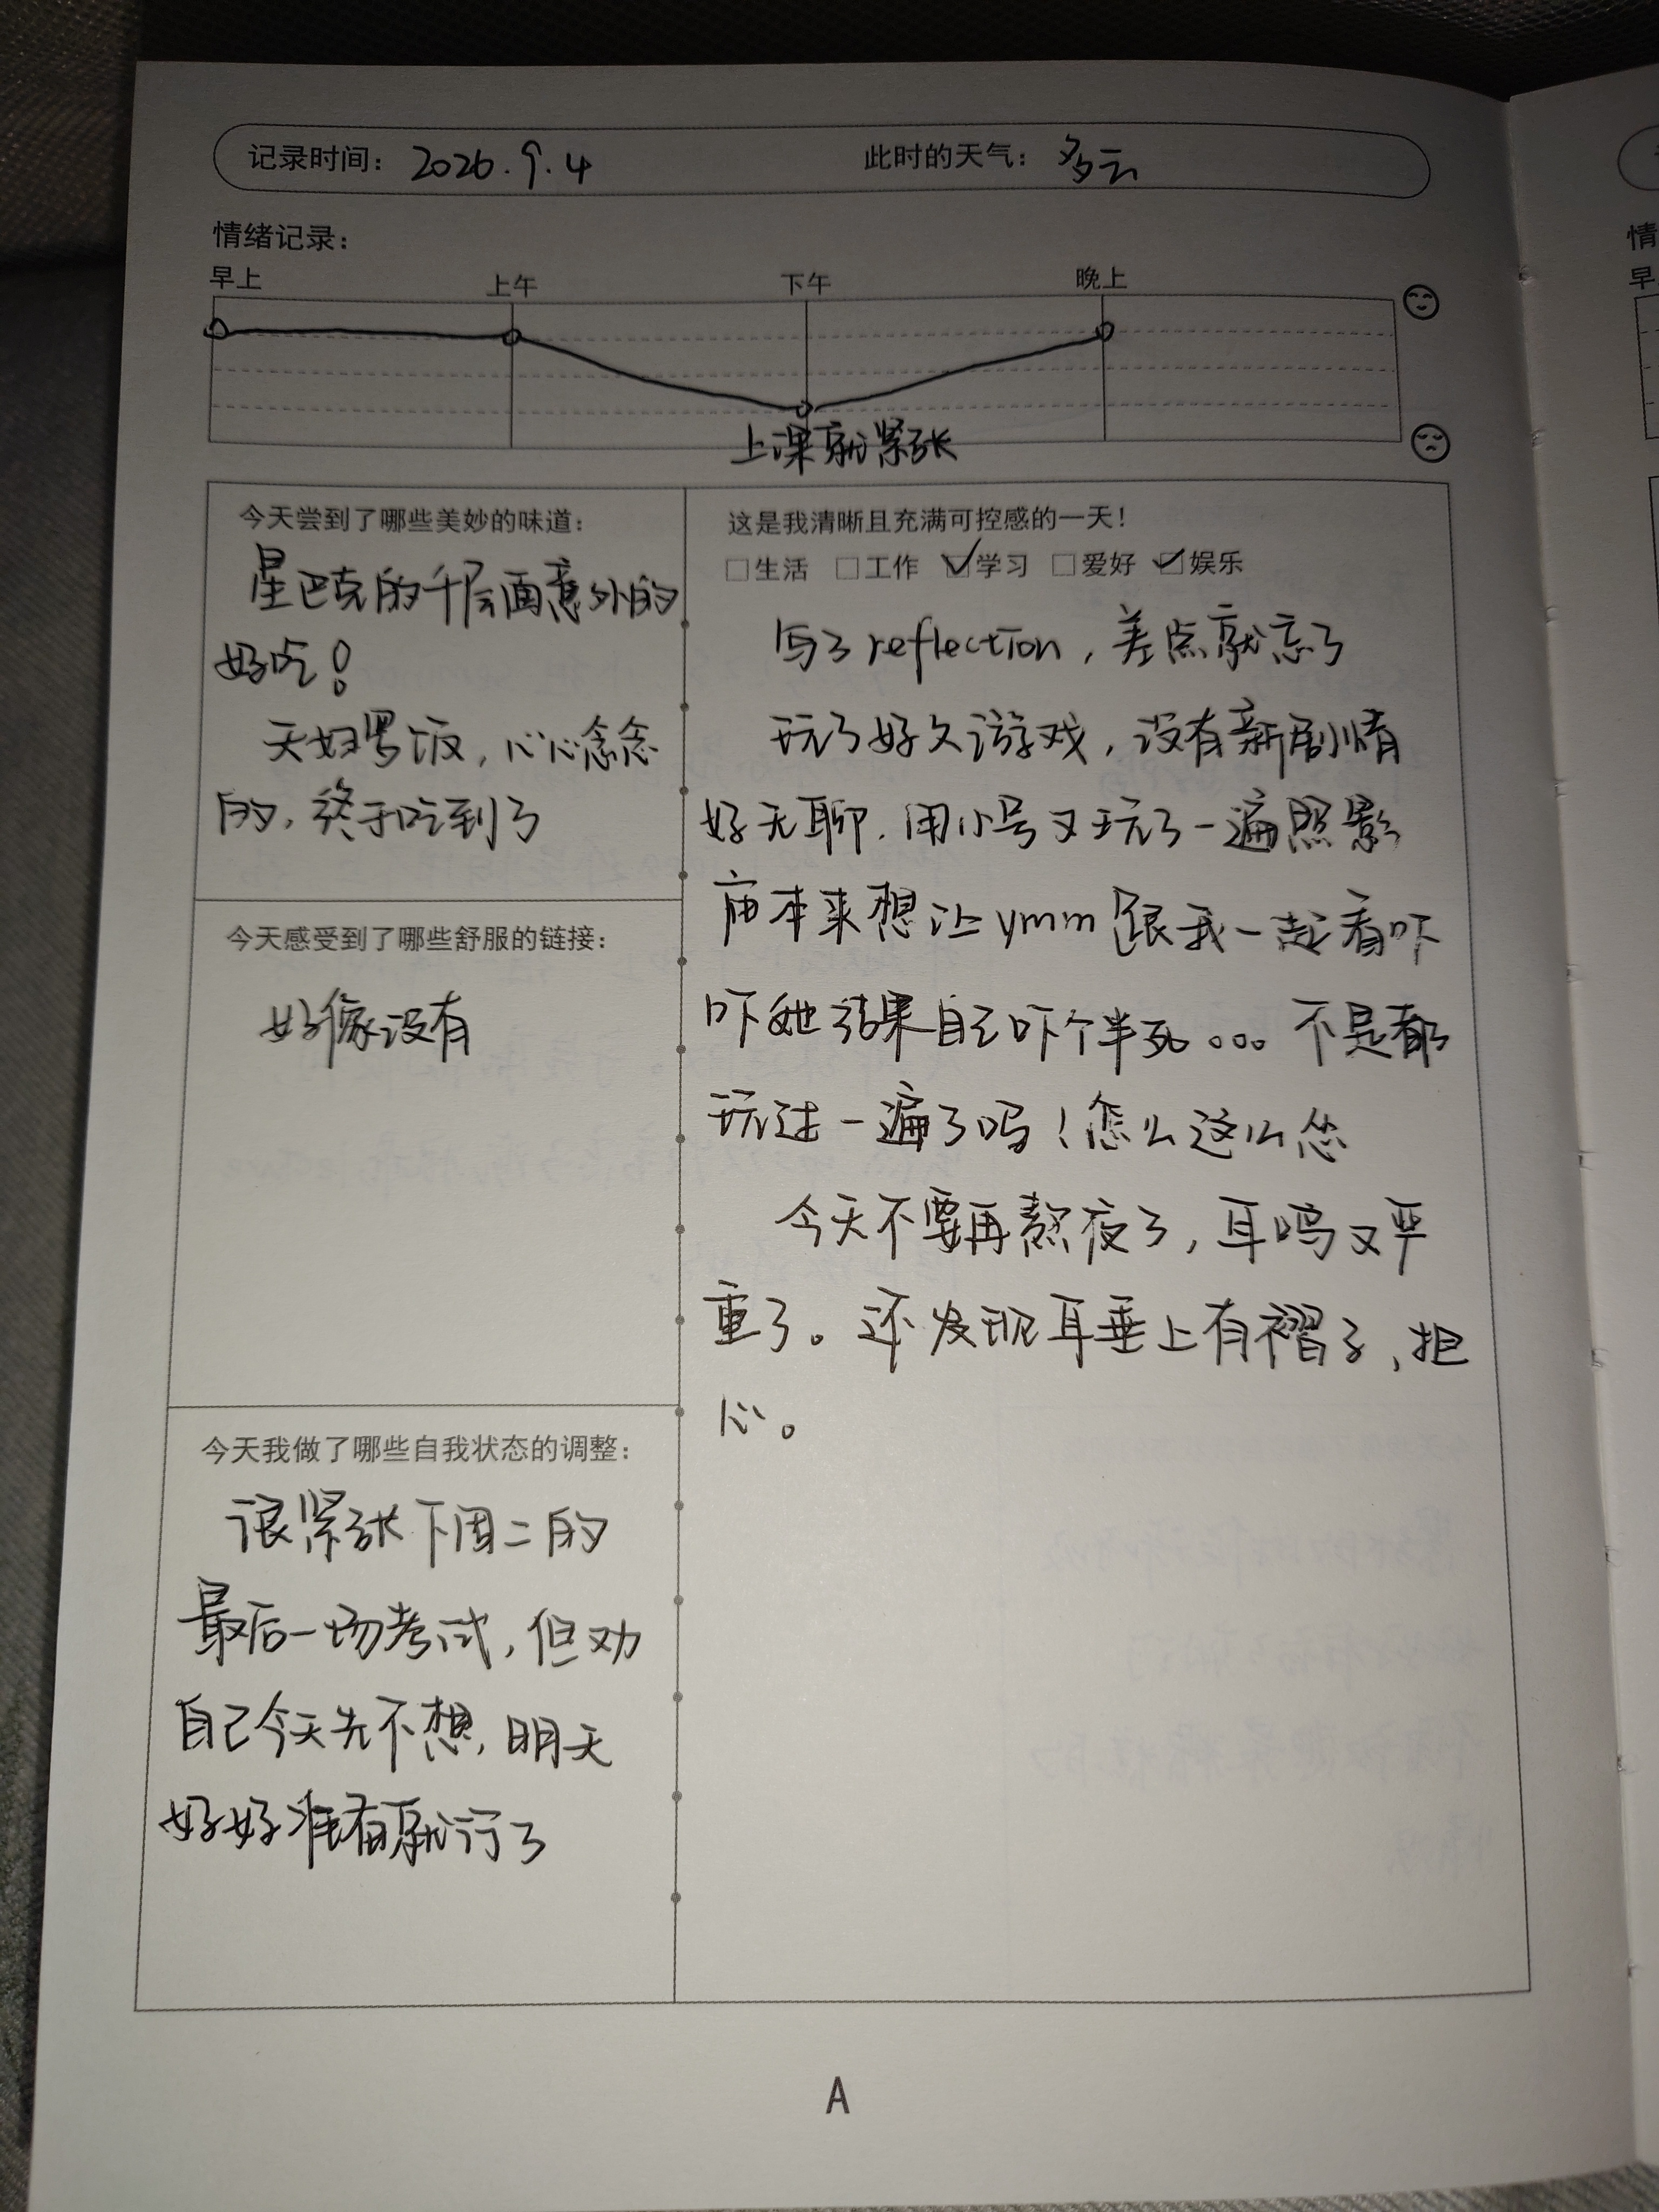 记录时间：2026.9.4 此时的天气：多云
情绪记录：
早上 上午 下午 晚上
上课就紧张
今天尝到了哪些美妙的味道：
星巴克的千层面意外的
好吃！
天妇罗饭，心心念念
的，终于吃到了
今天感受到了哪些舒服的链接：
好像没有
今天我做了哪些自我状态的调整：
很紧张下周二的
最后一场考试，但劝
自己今天先不想，明天
好好准备就行了
这是我清晰且充满可控感的一天！
□生活 □工作 ☑学习 □爱好 ☑娱乐
写了reflection，差点就忘了
玩了好久游戏，没有新剧情
好无聊，用小号又玩了一遍照影
庙本来想让ymm跟我一起看吓
吓她结果自己吓个半死。。。不是都
玩过一遍了吗！怎么这么怂
今天不要再熬夜了，耳鸣又严
重了。还发现耳垂上有褶子，担
心。
A
情
早